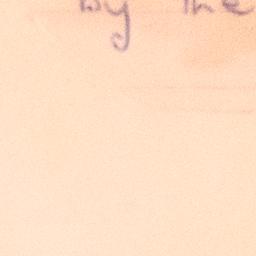 by the